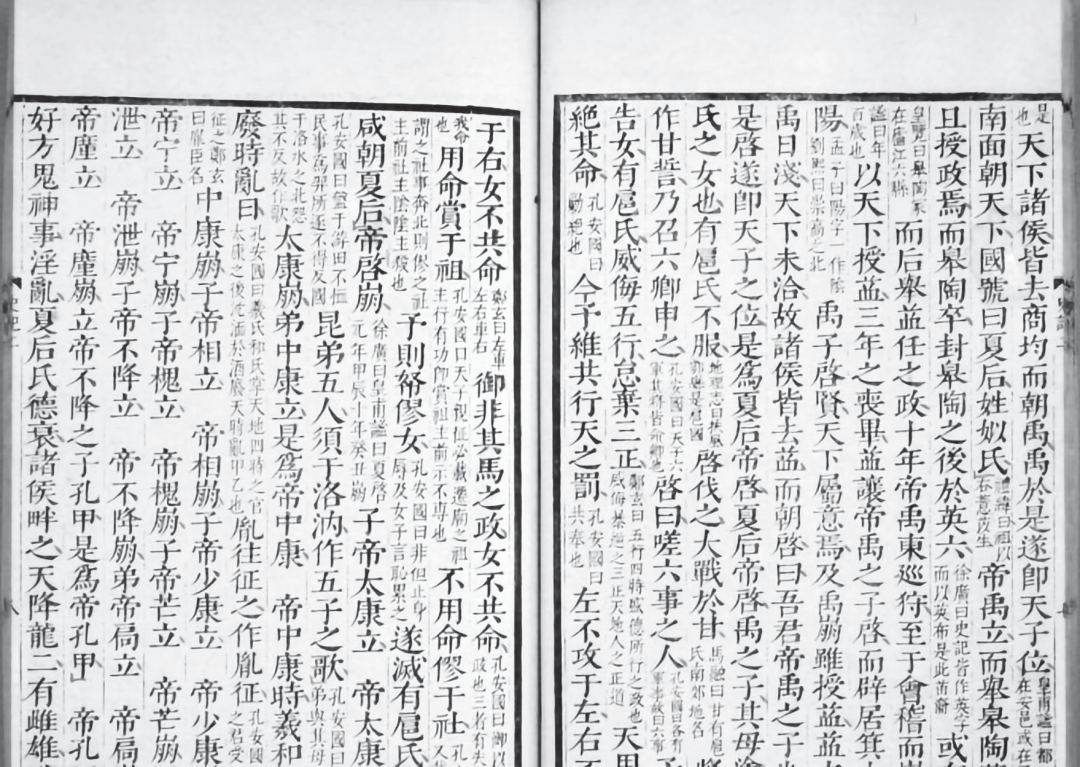 是也天下諸侯皆去商均而朝禹禹於是遂卽天子位皇甫謐曰都在安邑或在
南面朝天下國號曰夏后姓姒氏禮緯曰祖以吞薏苡生帝禹立而舉皋陶
且授政焉而皋陶卒封皋陶之後於英六徐廣曰史記皆作英字而以英布是此苗裔或在
皇覽曰皋陶冢在廬江六縣而后舉益任之政十年帝禹東巡狩至于會稽而崩
謚曰年百歲也以天下授益三年之喪畢益讓帝禹之子啓而辟居箕
陽孟子曰陽字一作陰劉熙曰崇高之北禹子啓賢天下屬意焉及禹崩雖授益益
禹日淺天下未洽故諸侯皆去益而朝啓曰吾君帝禹之子
是啓遂卽天子之位是爲夏后帝啓夏后帝啓禹之子其母塗
氏之女也有扈氏不服地理志曰扶風鄠縣是扈國啓伐之大戰於甘馬融曰甘有扈氏南郊地名將
作甘誓乃召六卿申之孔安國曰天子六軍其將皆命卿也啓曰嗟六事之人孔安國曰各有軍事故曰六事
告女有扈氏威侮五行怠棄三正鄭玄曰五行四時盛德所行之政也威侮暴逆之三正天地人之正道天用
絕其命孔安國曰勦絕也今予維共行天之罰孔安國曰共奉也左不攻于左右不
于右女不共命鄭玄曰左車左右車右御非其馬之政女不共命孔安國曰御以政也三者有失
我命也用命賞于祖孔安國曰天子親征必載遷廟之祖主行有功卽賞祖主前示不專也不用命僇于社孔
謂之社事奔北則僇之社主前社主陰陰主殺也予則帑僇女孔安國曰非但止身辱及女子言恥累之遂滅有扈氏
咸朝夏后帝啓崩徐廣曰皇甫謐曰夏啓元年甲辰十年癸丑崩子帝太康立帝太康
孔安國曰盤于游田不恤民事爲羿所逐不得反國昆弟五人須于洛汭作五子之歌孔安國曰弟與其母
于洛水之北怨其不反故作歌太康崩弟中康立是爲帝中康帝中康時羲和
廢時亂日孔安國曰羲氏和氏掌天地四時之官太康之後沈湎於酒廢天時亂甲乙也胤往征之作胤征孔安國之君受
征之鄭玄曰胤臣名中康崩子帝相立帝相崩子帝少康立帝少康
帝宁立帝宁崩子帝槐立帝槐崩子帝芒立帝芒崩
泄立帝泄崩子帝不降立帝不降崩弟帝扃立帝扃
帝廑立帝廑崩立帝不降之子孔甲是爲帝孔甲帝孔
好方鬼神事淫亂夏后氏德衰諸侯畔之天降龍二有雌雄